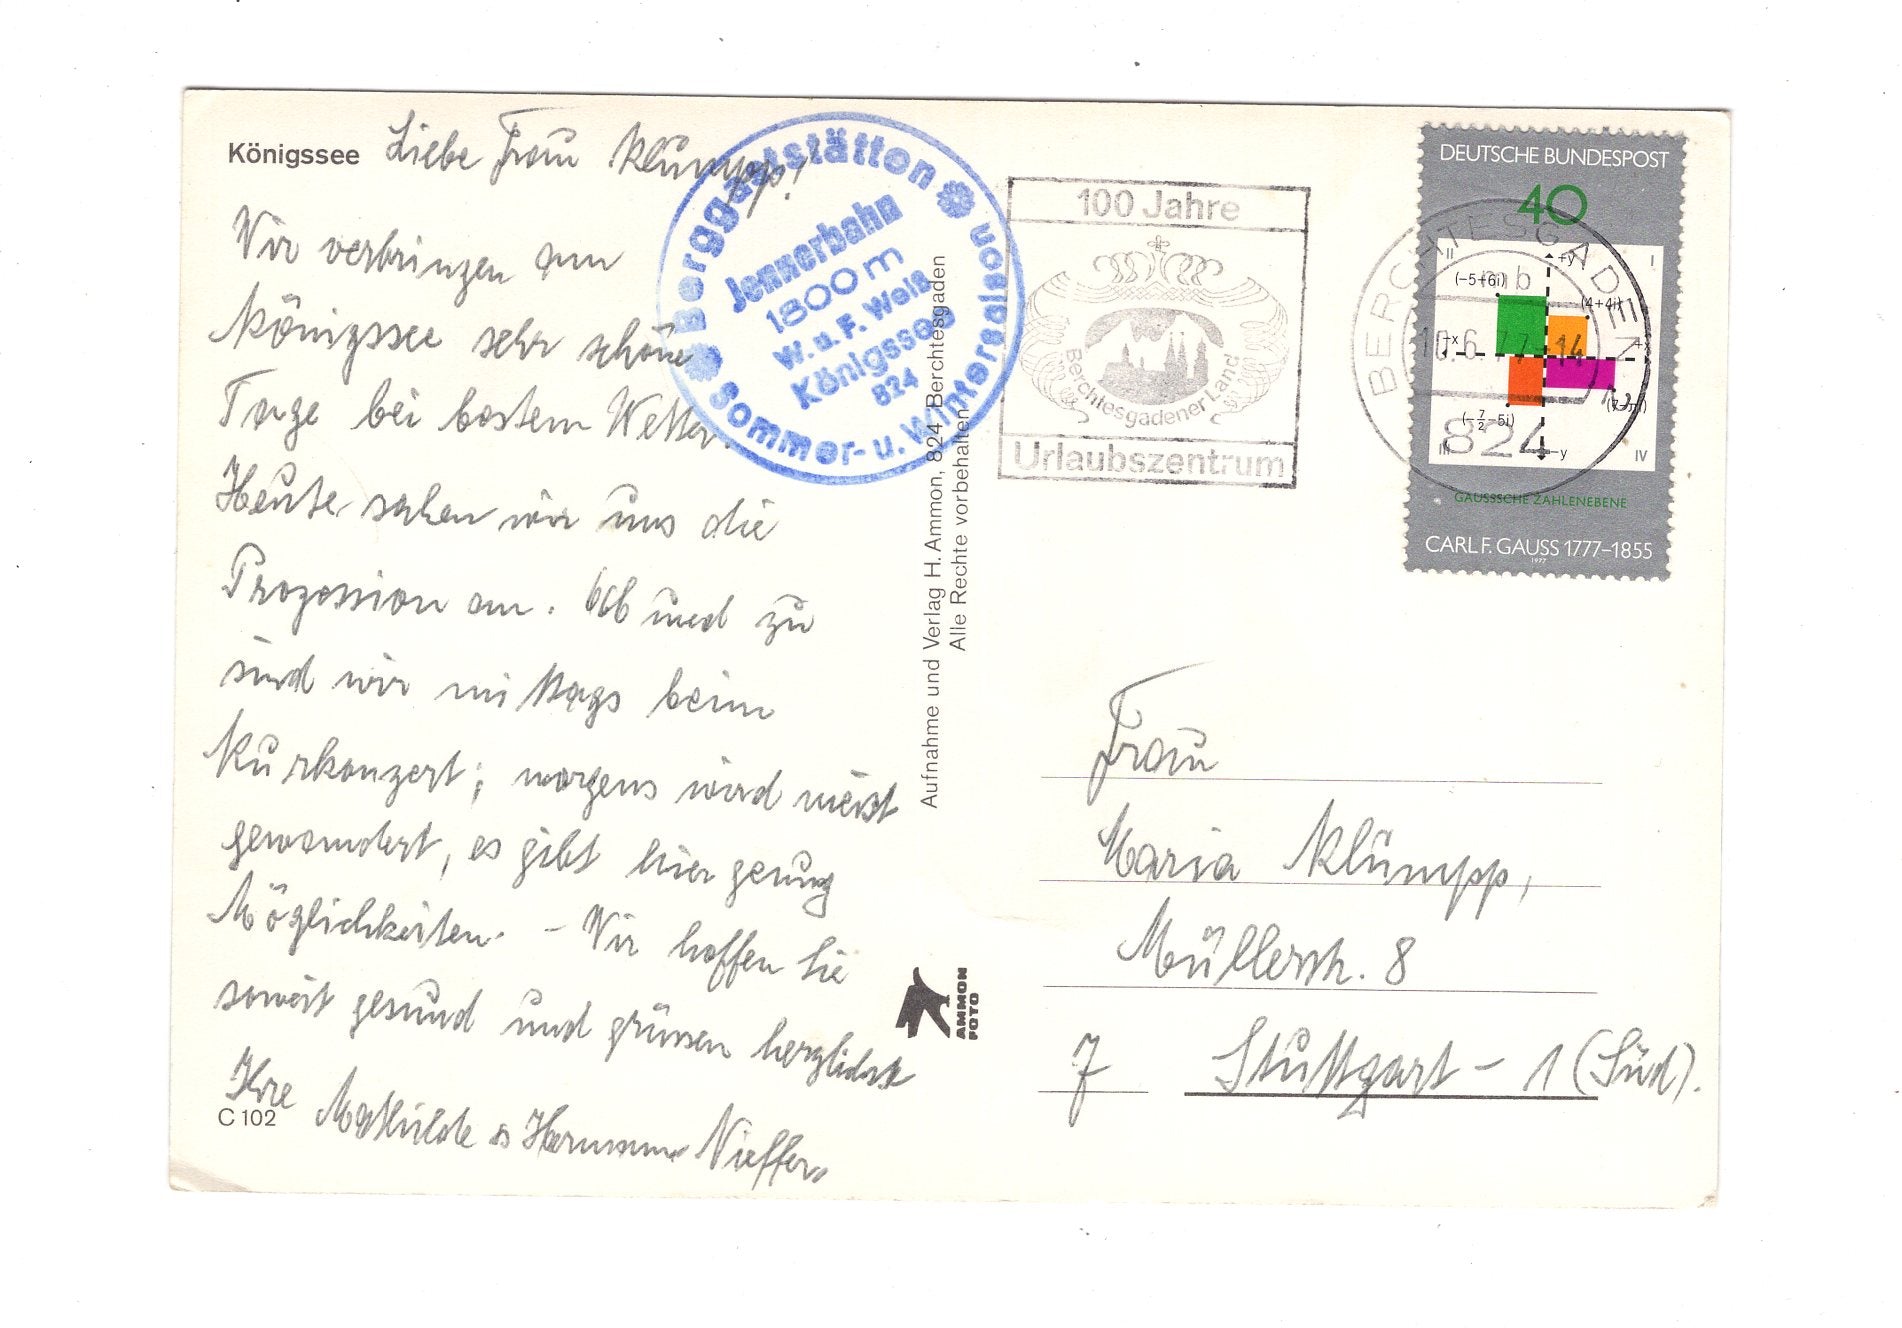 Königssee
Liebe Frau Klumpp!
Wir verbringen am
Königssee sehr schöne
Tage bei bestem Wetter.
Heute sahen wir uns die
Prozession an. Ab und zu
sind wir mittags beim
Kurkonzert; morgens wird meist
gewandert, es gibt hier genug
Möglichkeiten. - Wir hoffen Sie
soweit gesund und grüssen herzlichst
Ihre Mathilde & Hermann
C 102
Berggaststätten
Jennerbahn
1800 m
W. u. F. Weis
Königssee
824
Sommer- u. Wintersaison
Aufnahme und Verlag H. Ammon, 824 Berchtesgaden
Alle Rechte vorbehalten
AMMON
FOTO
100 Jahre
Berchtesgadener Land
Urlaubszentrum
BERCHTESGADEN
mb
10.6.77-14
824
DEUTSCHE BUNDESPOST
40
II
+y
I
(-5+6i)
(4+4i)
-x
+x
(-7/2-5i)
III
-y
IV
GAUSSSCHE ZAHLENEBENE
CARL F. GAUSS 1777-1855
1977
Frau
Maria Klümpp,
Müllerstr. 8
7 Stuttgart - 1 (Süd).